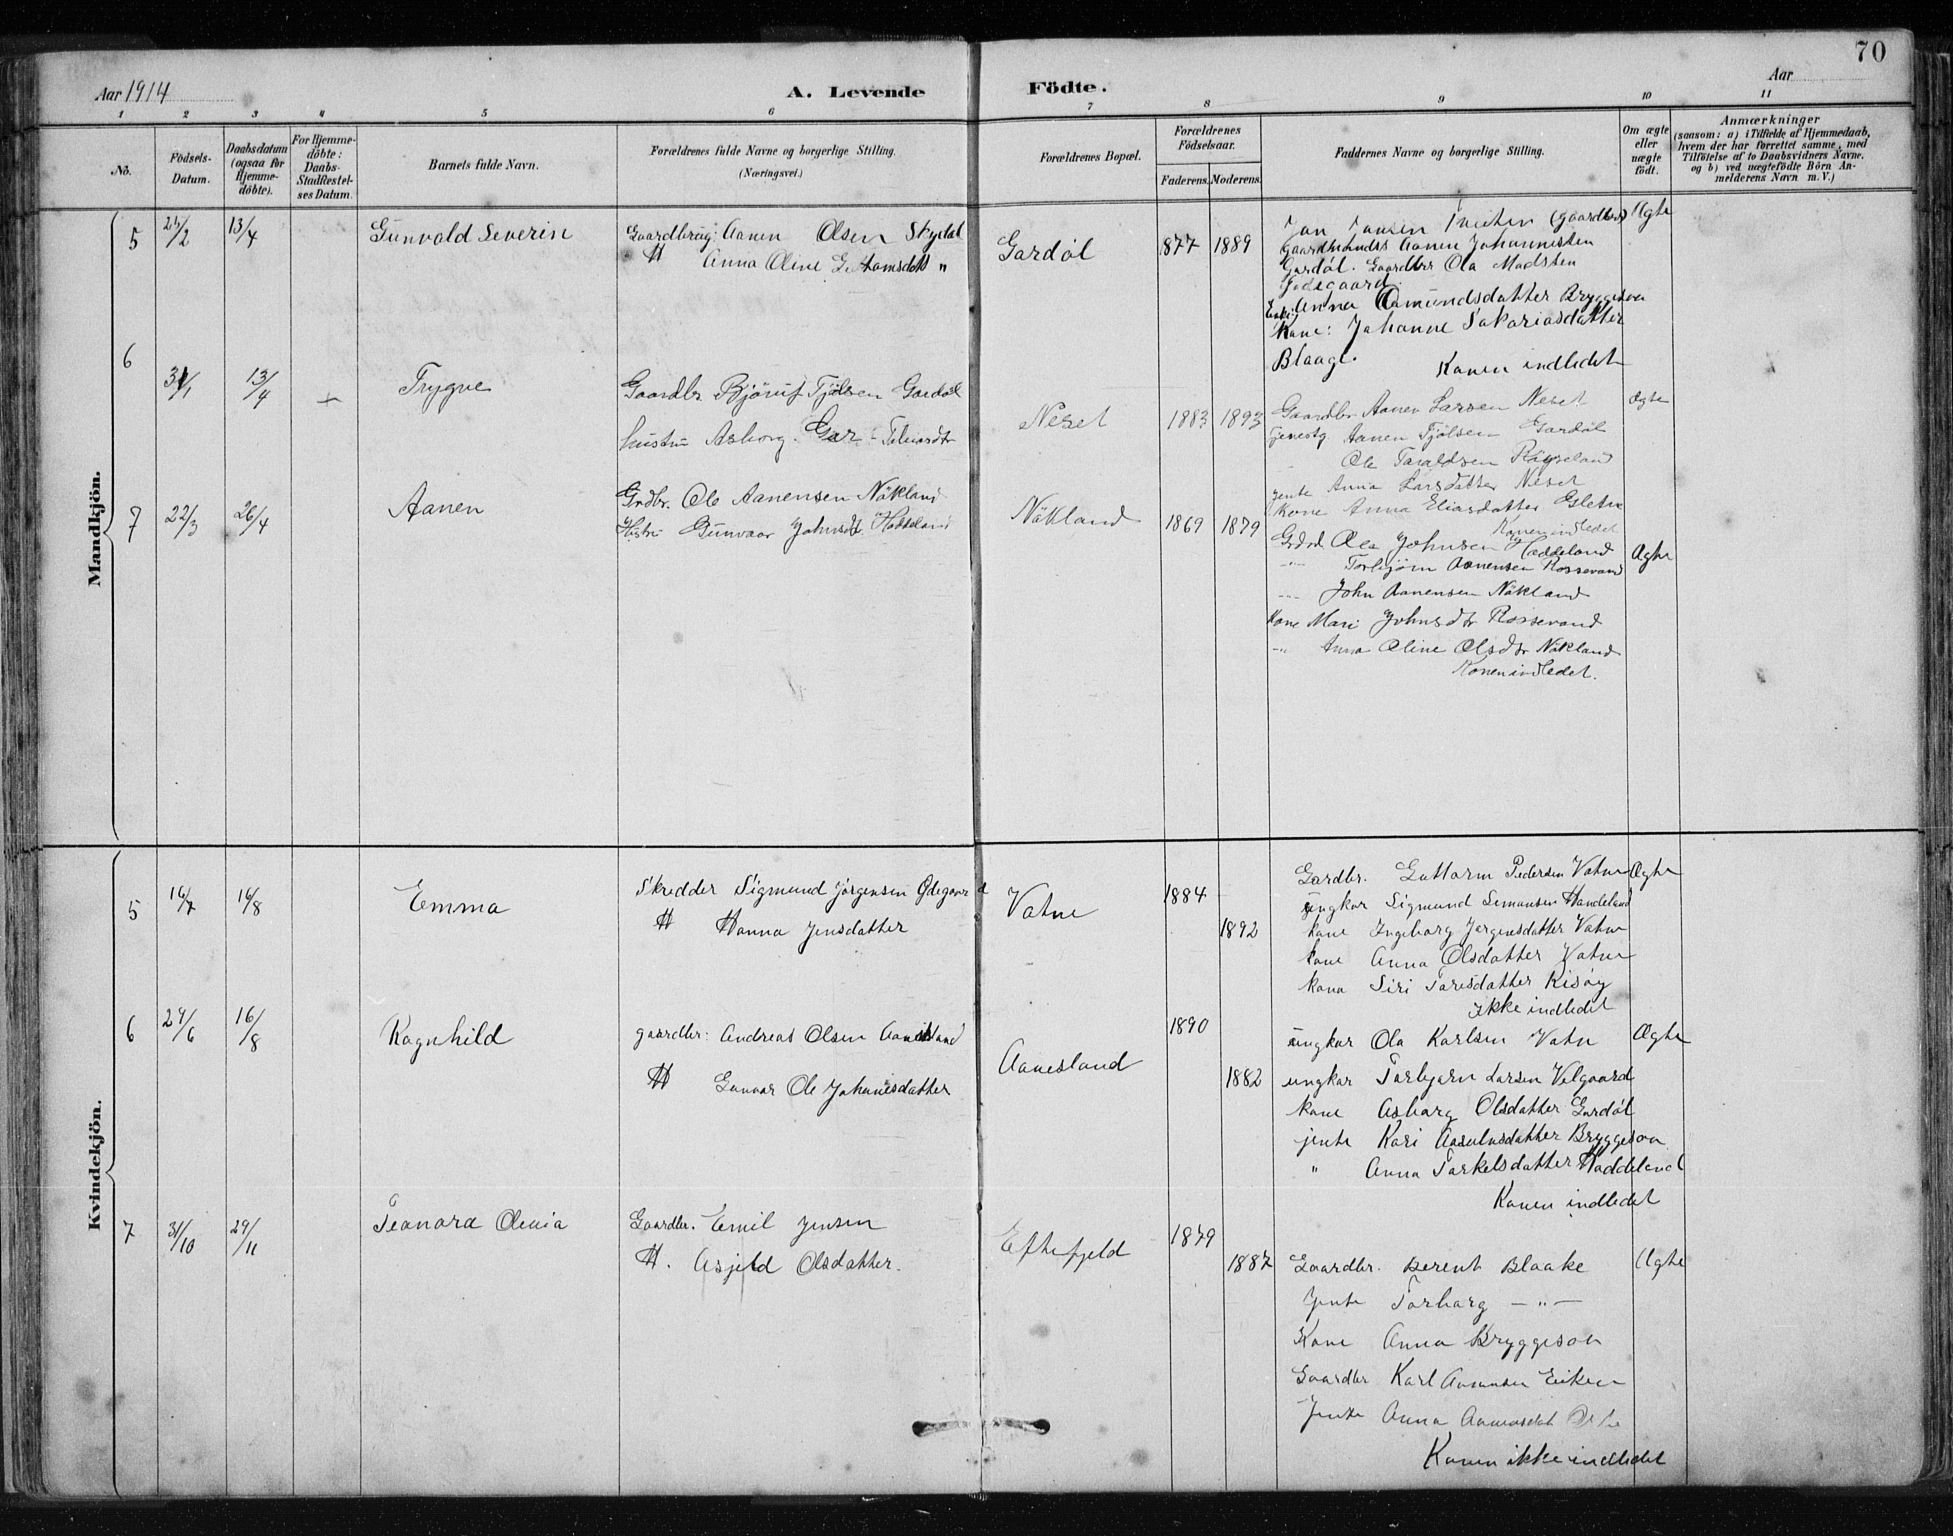 70
Aar 1914
A. Levende Födte.
Aar
1 2 3 4 5 6 7 8 9 10 11
No.
Födsels-Datum.
Daabsdatum (ogsaa for Hjemme-döbte).
For Hjemme-döbte: Daabs-Stadfæstel-ses Datum.
Barnets fulde Navn.
Forældrenes fulde Navne og borgerlige Stilling.
(Næringsvei.)
Forældrenes Bopæl.
Forældrenes Födselsaar.
Faderens. Moderens.
Faddernes Navne og borgerlige Stilling.
Om ægte eller uægte födt.
Anmærkninger
(saasom: a) i Tilfælde af Hjemmedaab,
hvem der har forrettet samme, med
Tilföielse af to Daabsvidners Navne,
og b) ved uægtefödte Börn An-
melderens Navn m. V.)
Mandkjön.
5 13/4 Gunvald Severin
Gaardbrug: Aanen Olsen
H Anna Oline
Gardöl 877 1889
Jan Jansen (gaardbr) Ægte
Aanen Johannesen
Gardöl. Gaardbr Ola Madssen
Anna Aamundsdatter Bryggesaa
Kone: Johanne Sakariasdatter
Blaage.
Konen indledet
6 31/1 13/4 Trygve
Gaardbr Tjölsen Gardöl
hustru Asborg
Neset 1883 1893
Gaardbr Aanen Larsen Neset Ægte
Aanen Tjölsen Gardöl
Ole Taraldsen Röyseland
jente Anna Larsdatter Neset
Kone Anna Eliasdatter
Konen indledet
7 22/3 26/4 Aanen
Grdbr. Ole Aanensen Nökland
Hustru Gunvaar Johnsdt. Haddeland
Nökland 1869 1879
Ole Johnsen Haddeland
Torbjörn Aanensen Rossevand Ægte
John Aanensen Nökland
Kone Mari Johnsdtr Rossevand
" Anna Oline Olsdtr Nökland
Konen indledet.
Kvindekjön.
5 16/7 16/8 Emma
Skredder Sigmund Jörgensen Ødegaard
H Hanna Jensdatter
Vatne 1884
1892
Gardbr. Guttorm Pedersen Vatne Ægte
ungkar Sigmund Simonsen Handeland
kone Ingeborg Jörgensdatter Vatne
kone Anna Olsdatter Vatne
kona Siri Taresdatter Risöy
ikke indledet
6 29/6 16/8 Ragnhild
gaardbr: Andreas Olsen Aanesland
H Gunvor Ole Johanesdatter
Aanesland 1890
1882
ungkar Ola Karlsen Vatn Ægte
ungkar Tarbjørn Larsen Velgaard
kone Asbarg Olsdatter Gardöl
jente Kari Aasulvsdatter Bryggesaa
" Anna Tarkelsdatter Haddeland
Konen indledet
7 31/10 29/11 Teanora Olenia
Gaardbr. Emil Jensen
H. Asjeld Olsdatter.
Eftefjeld 1879
1887
Gaardbr. Berent Blaake Ægte
Jente Torbarg — " —
Kone Anna Bryggesaa
Gaardbr Karl Aanensen Eiken
Jente Anna
Konen ikke indledet